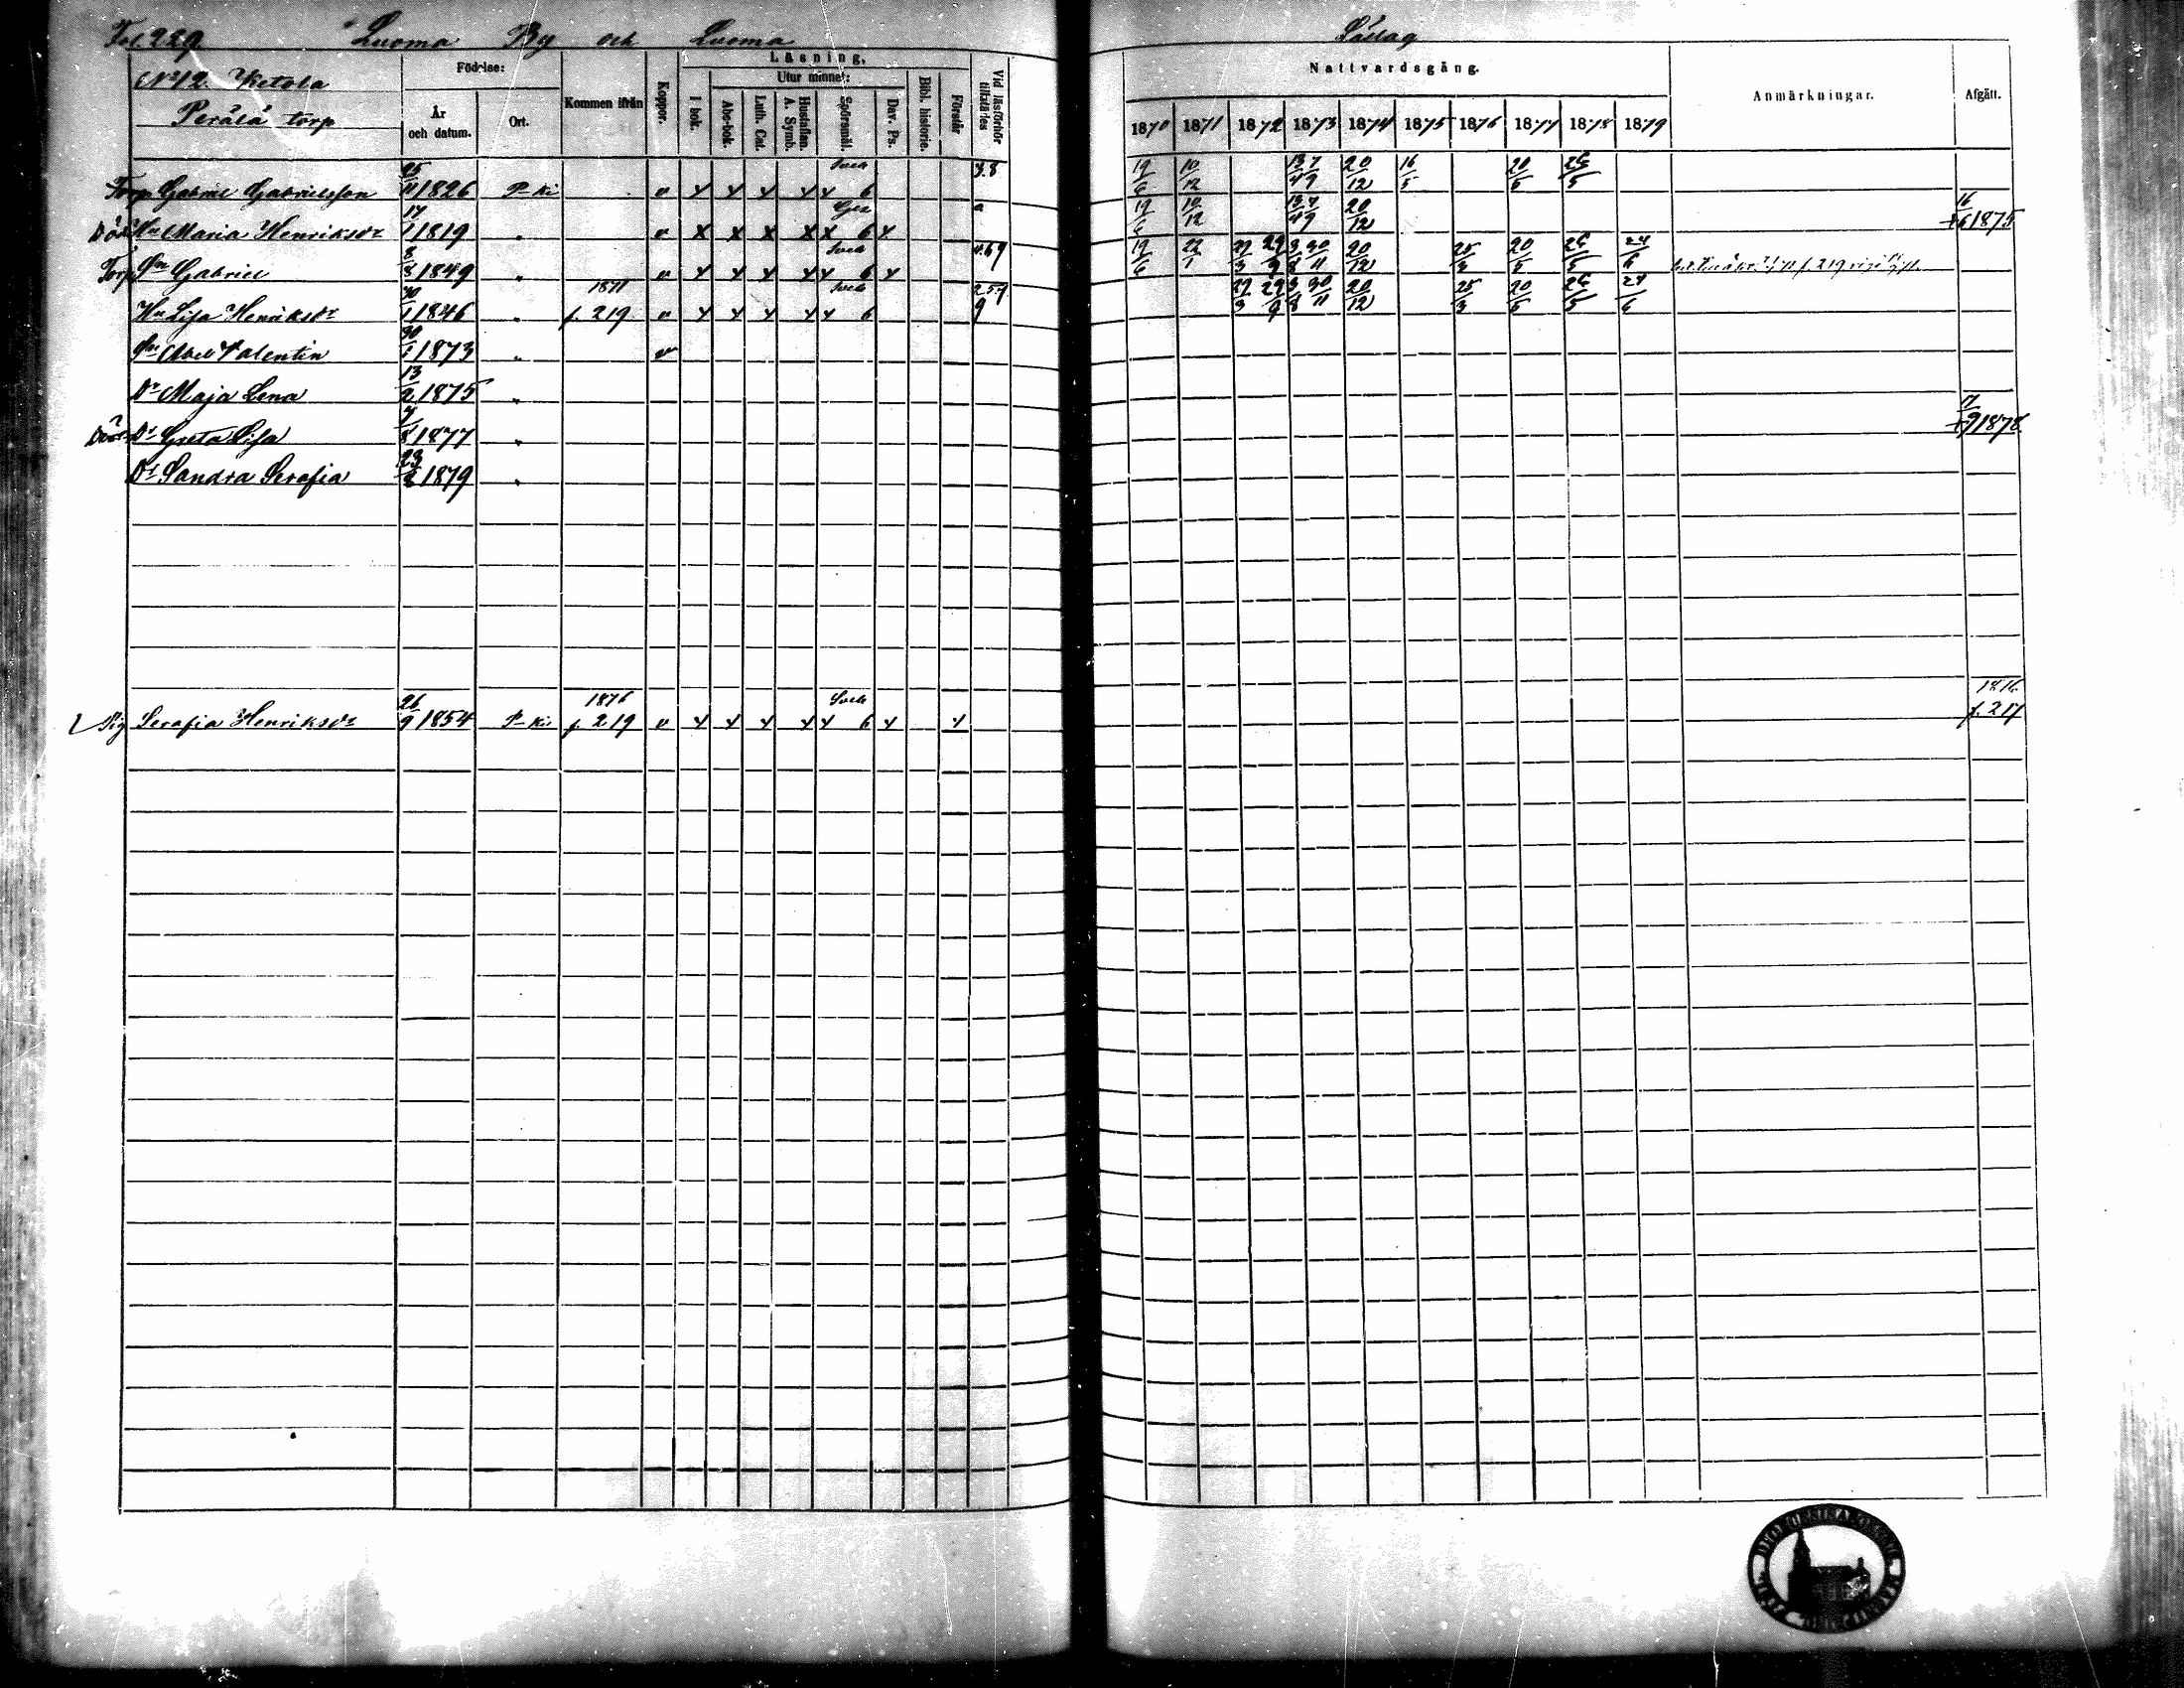 Fol. 229 Luoma By och Luoma Låslag
No 12. Ketola
Perälä torp
Födelse:
År och datum.
Ort.
Kommen ifrån
Koppor.
Läsning,
I bok.
Utur minnet:
Abc-bok.
Luth. Cat.
Hustaflan. A. Symb.
Spörsmål.
Dav. Ps.
Bibl. historie.
Förstår
Vid läsförhör tillstädes
Nattvardsgång.
1870 1871 1872 1873 1874 1875 1876 1877 1878 1879
Anmärkningar.
Afgått.
Torp. Gabriel Gabrielsson 25/11 1826 P-ki v x x x x x 6 3.8 19/6 10/12 20/12 16/5 20/5 26/5
Död Hu Maria Henriksdr 17/1 1819 " v x x x x x 6 x 19/6 10/12 20/12 16/6 1875
Torp. Sn Gabriel 8/8 1849 " v x x x x x 6 x 19/6 22/1 20/12 25/3 20/5 26/5 24/6
Hu Lisa Henriksdr 30/1 1846 " 1871 f. 219 v x x x x x 6 20/12 25/3 20/5 26/5 24/6
Sn Abel Valentin 30/1 1873 " v
Dr Maja Lena 13/2 1875 "
Död Dr Greta Lisa 7/8 1877 " 17/9 1878
Dr Sandra Serafia 23/2 1879 "
Pig Serafia Henriksdr 26/9 1854 P-ki 1876 f. 219 v x x x x x 6 x x 1876 f. 217